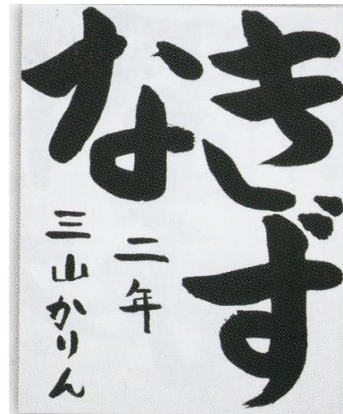 きず
な
二年
三山かりん